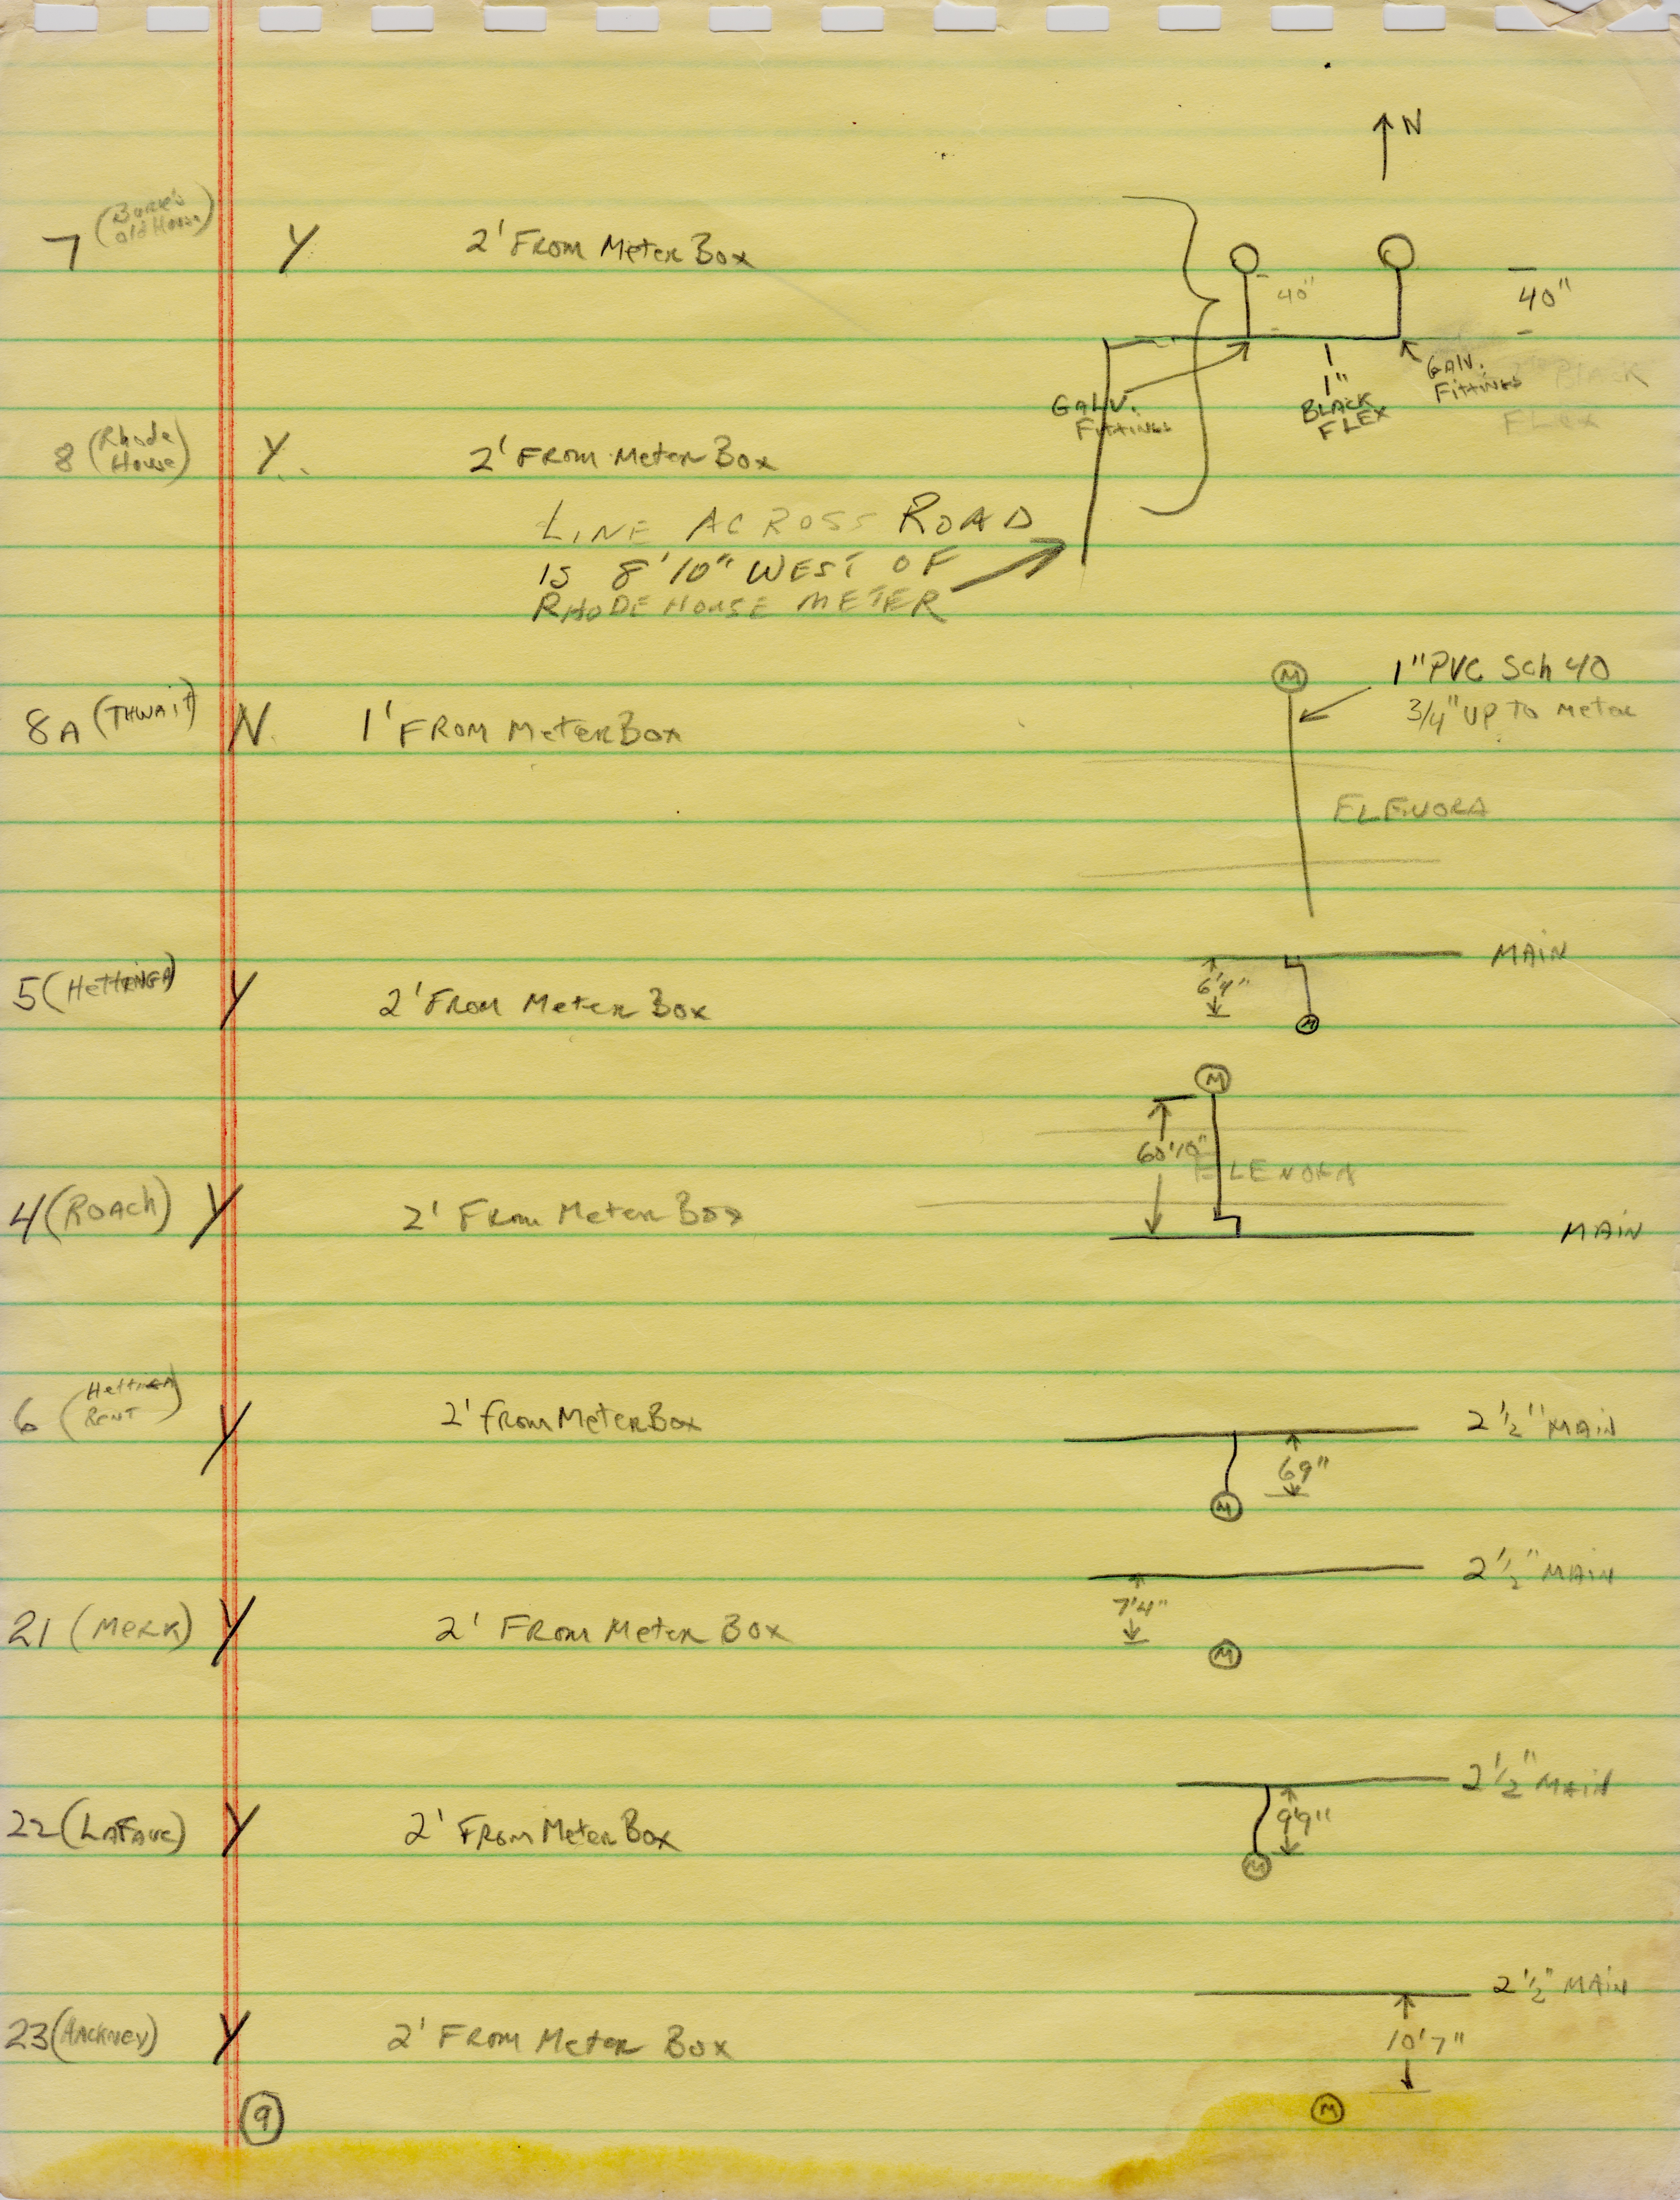 N
7 (Burke's
old House) Y 2' From Meter Box
40"
40"
Galv.
Fittings
1"
Black
Flex
Galv.
Fittings
Black
Flex
8 (Rhode
House) Y. 2' From Meter Box
Line Across Road
is 8'10" West of
Rhode House Meter
8A (Thwait) N. 1' From Meter Box
M
1" PVC Sch 40
3/4" up to meter
Elenora
5 (Hettinga) Y 2' From Meter Box
Main
6'4"
M
4 (Roach) Y 2' From Meter Box
M
60'10"
Elenora
Main
6 (Hettinga
Rent) Y 2' from Meter Box
2 1/2" Main
69"
M
21 (Merk) Y 2' From Meter Box
2 1/2" Main
7'4"
M
22 (LaFave) Y 2' From Meter Box
2 1/2" Main
9'9"
M
23 (Hackney) Y 2' From Meter Box
2 1/2" Main
10'7"
M
9